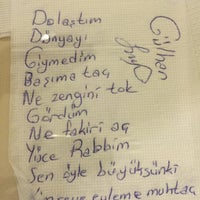 Dolaştım
Dünyayı
Giymedim
Başıma taç
Ne zengini tok
Gördüm
Ne fakiri aç
Yüce Rabbim
Sen öyle büyüksünki
eyleme muhtaç
Gülhan